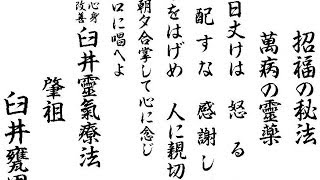 招福の秘法
萬病の靈薬
日丈けは 怒る
配すな 感謝し
をはげめ 人に親切
朝夕合掌して心に念じ
口に唱へよ
心身改善 臼井靈氣療法
肇祖
臼井甕男